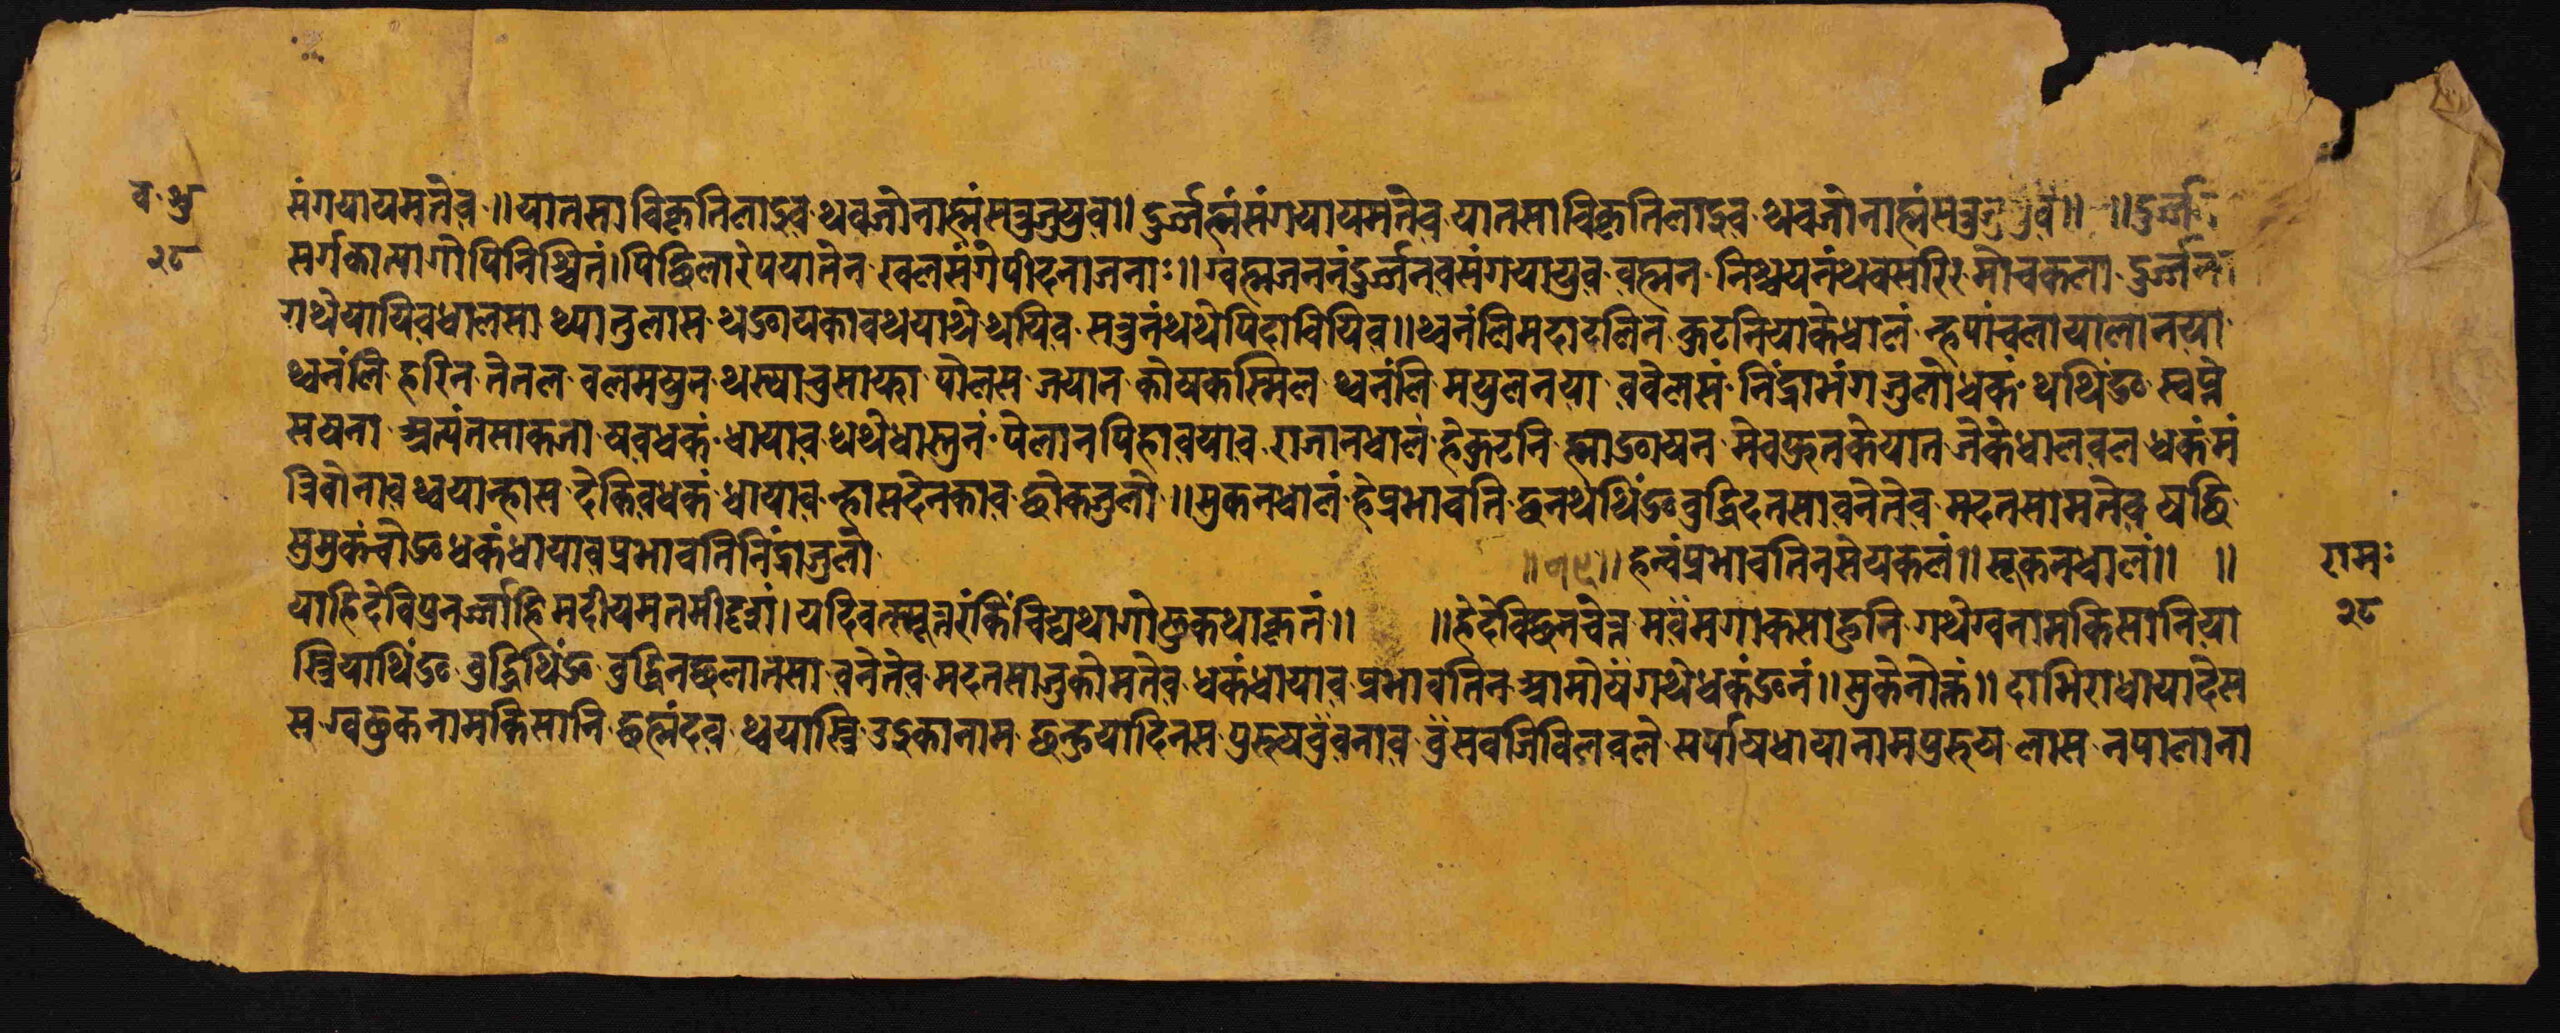 व.शु
२८
संगयायमतेव ॥ यातसा विकृतिलाङव थवजोनाह्मं सत्रुजुयुव ॥ दुर्ज्जह्मं संगयायमतेव यातसा विकृतिलाङव थवजोनाह्मं सत्रुजुयुव ॥ ॥ दुर्ज्जन
सर्गकात्मागोपिनिश्चितं । पिद्धिलारेपयातेन खलसंगे पीदनाजनाः ॥ ग्वह्मजननं दुर्ज्जनवसंगयायुव वह्मन निश्चयनं थवसरिर मोचकला दुर्ज्जनन
गथेयायिवधालसा थ्यातुलास थङायकावथयाथे थयिव सत्रुनंथथे पिदाबियिव ॥ थ्वनंलि मदादलिन क्रुटनियाके धालं न्हपांचलायालानया
थ्वनंलि हरिन तेतल वलमयुन थस्याचुसाफा पोलस जयान कोयकस्मिल थ्वनंलि मयुलनया ववेलसं निंद्राभंगजुलोधकं थथिंङ स्वप्ने
सयना अत्यंतसाकजा यवधकं धायाव थथेधास्तुनं पेलानपिहावयाव राजानधालं हेक्रुटनि ह्माङायन मेवफुतकेयान जेकेधालवल धकं मं
त्रिवोनाव थ्वयान्हास देकिवधकं धायाव न्हासदेनकाव छोकजुलो ॥ सुकनधालं हेप्रभावति छनथथिंङ बुद्धिदतसा वनेतेव मदतसा मतेव यछि
सुमुकंचोङ धकंधायाव प्रभावतिनिंद्राजुलो ॥ १९ ॥ हन्वं प्रभावतिनसेयकलं ॥ सूकनधालं ॥ ॥
याहिदेविपुनर्ज्जाहि मदीयमतमीदृशं । यदिवत्स्सूत्तरंकिंचिद्यथागोसुकथाकृतं ॥ ॥ हेदेविछनचेत्न मवंमगाकसाहुनि गथेग्वनामकिसानिया
स्त्रियाथिंङ बुद्धिथिंङ बुद्धिनछलातसा वनेतेव मदतसाजुकोमतेव धकंधायाव प्रभावतिन आमोयं गथेधकंङनं ॥ सुकेनोक्तं ॥ दाभिराधायादेस
स ग्वठुकनामकिसानि छह्मंदव थ्वयास्त्रि उङकानाम छन्हुयादिनस पुरुषवुंवनाव वुंसवजिविलवले सर्पायधायानामपुरुष लास नपालाना
रामः
२८